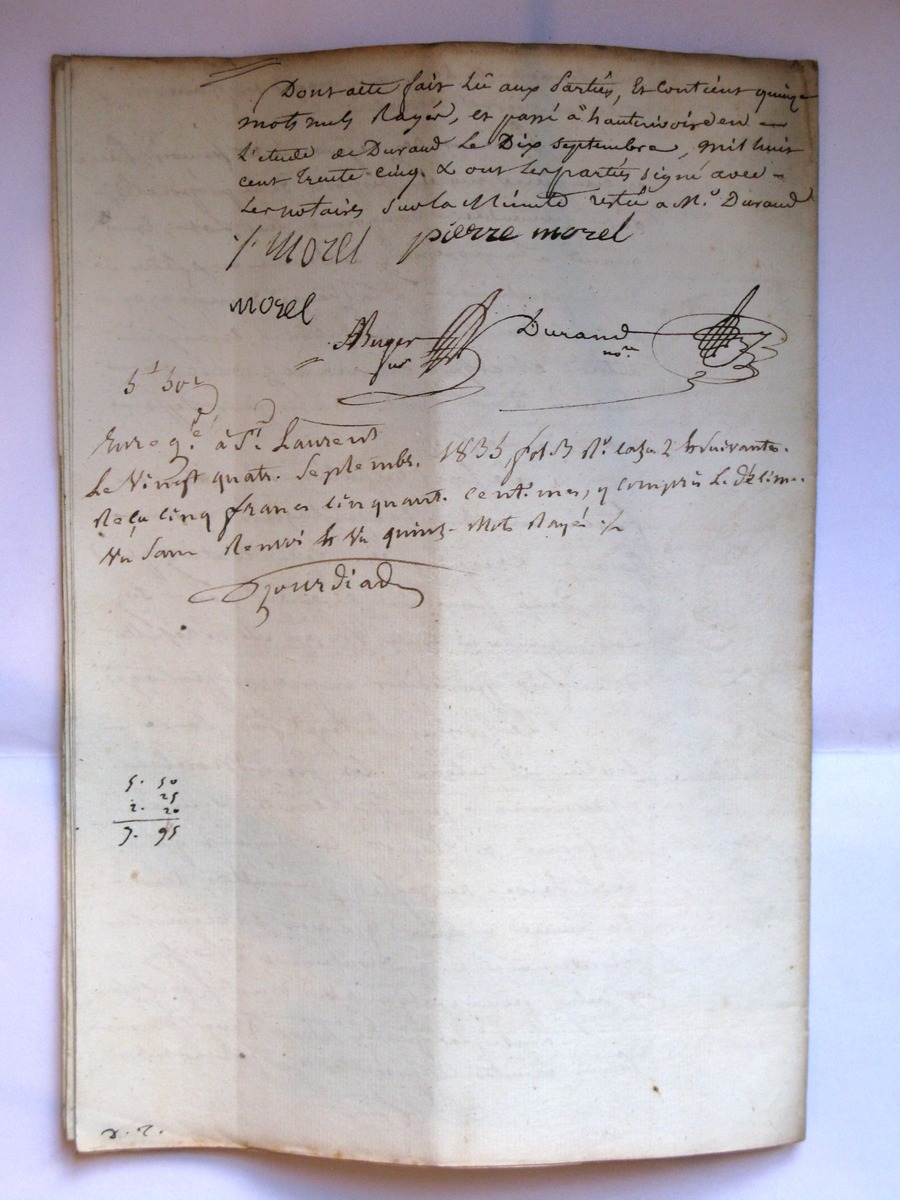 Dont acte fait Lû aux Parties, Et Contient quinze
mots nuls Rayés, et passé à hauterivoire en
L'etude de Durand Le Dix septembre, mil huit
cent trente cinq & ont Les parties signé avec
Les notaires Sur la Minute restée a Me. Durand
Morel pierre morel
morel
Durand
nre.
5f 50c
Enregé. à St. Laurent
Le Vingt quatre Septembre 1835, fol. Ro. Case 2 & Suivantes.
Reçu cinq francs cinquante centimes, y compris Le décime.
Vu Sans Renvoi & Vu quinze Mots Rayés
5. 50
25
2. 20
7. 95